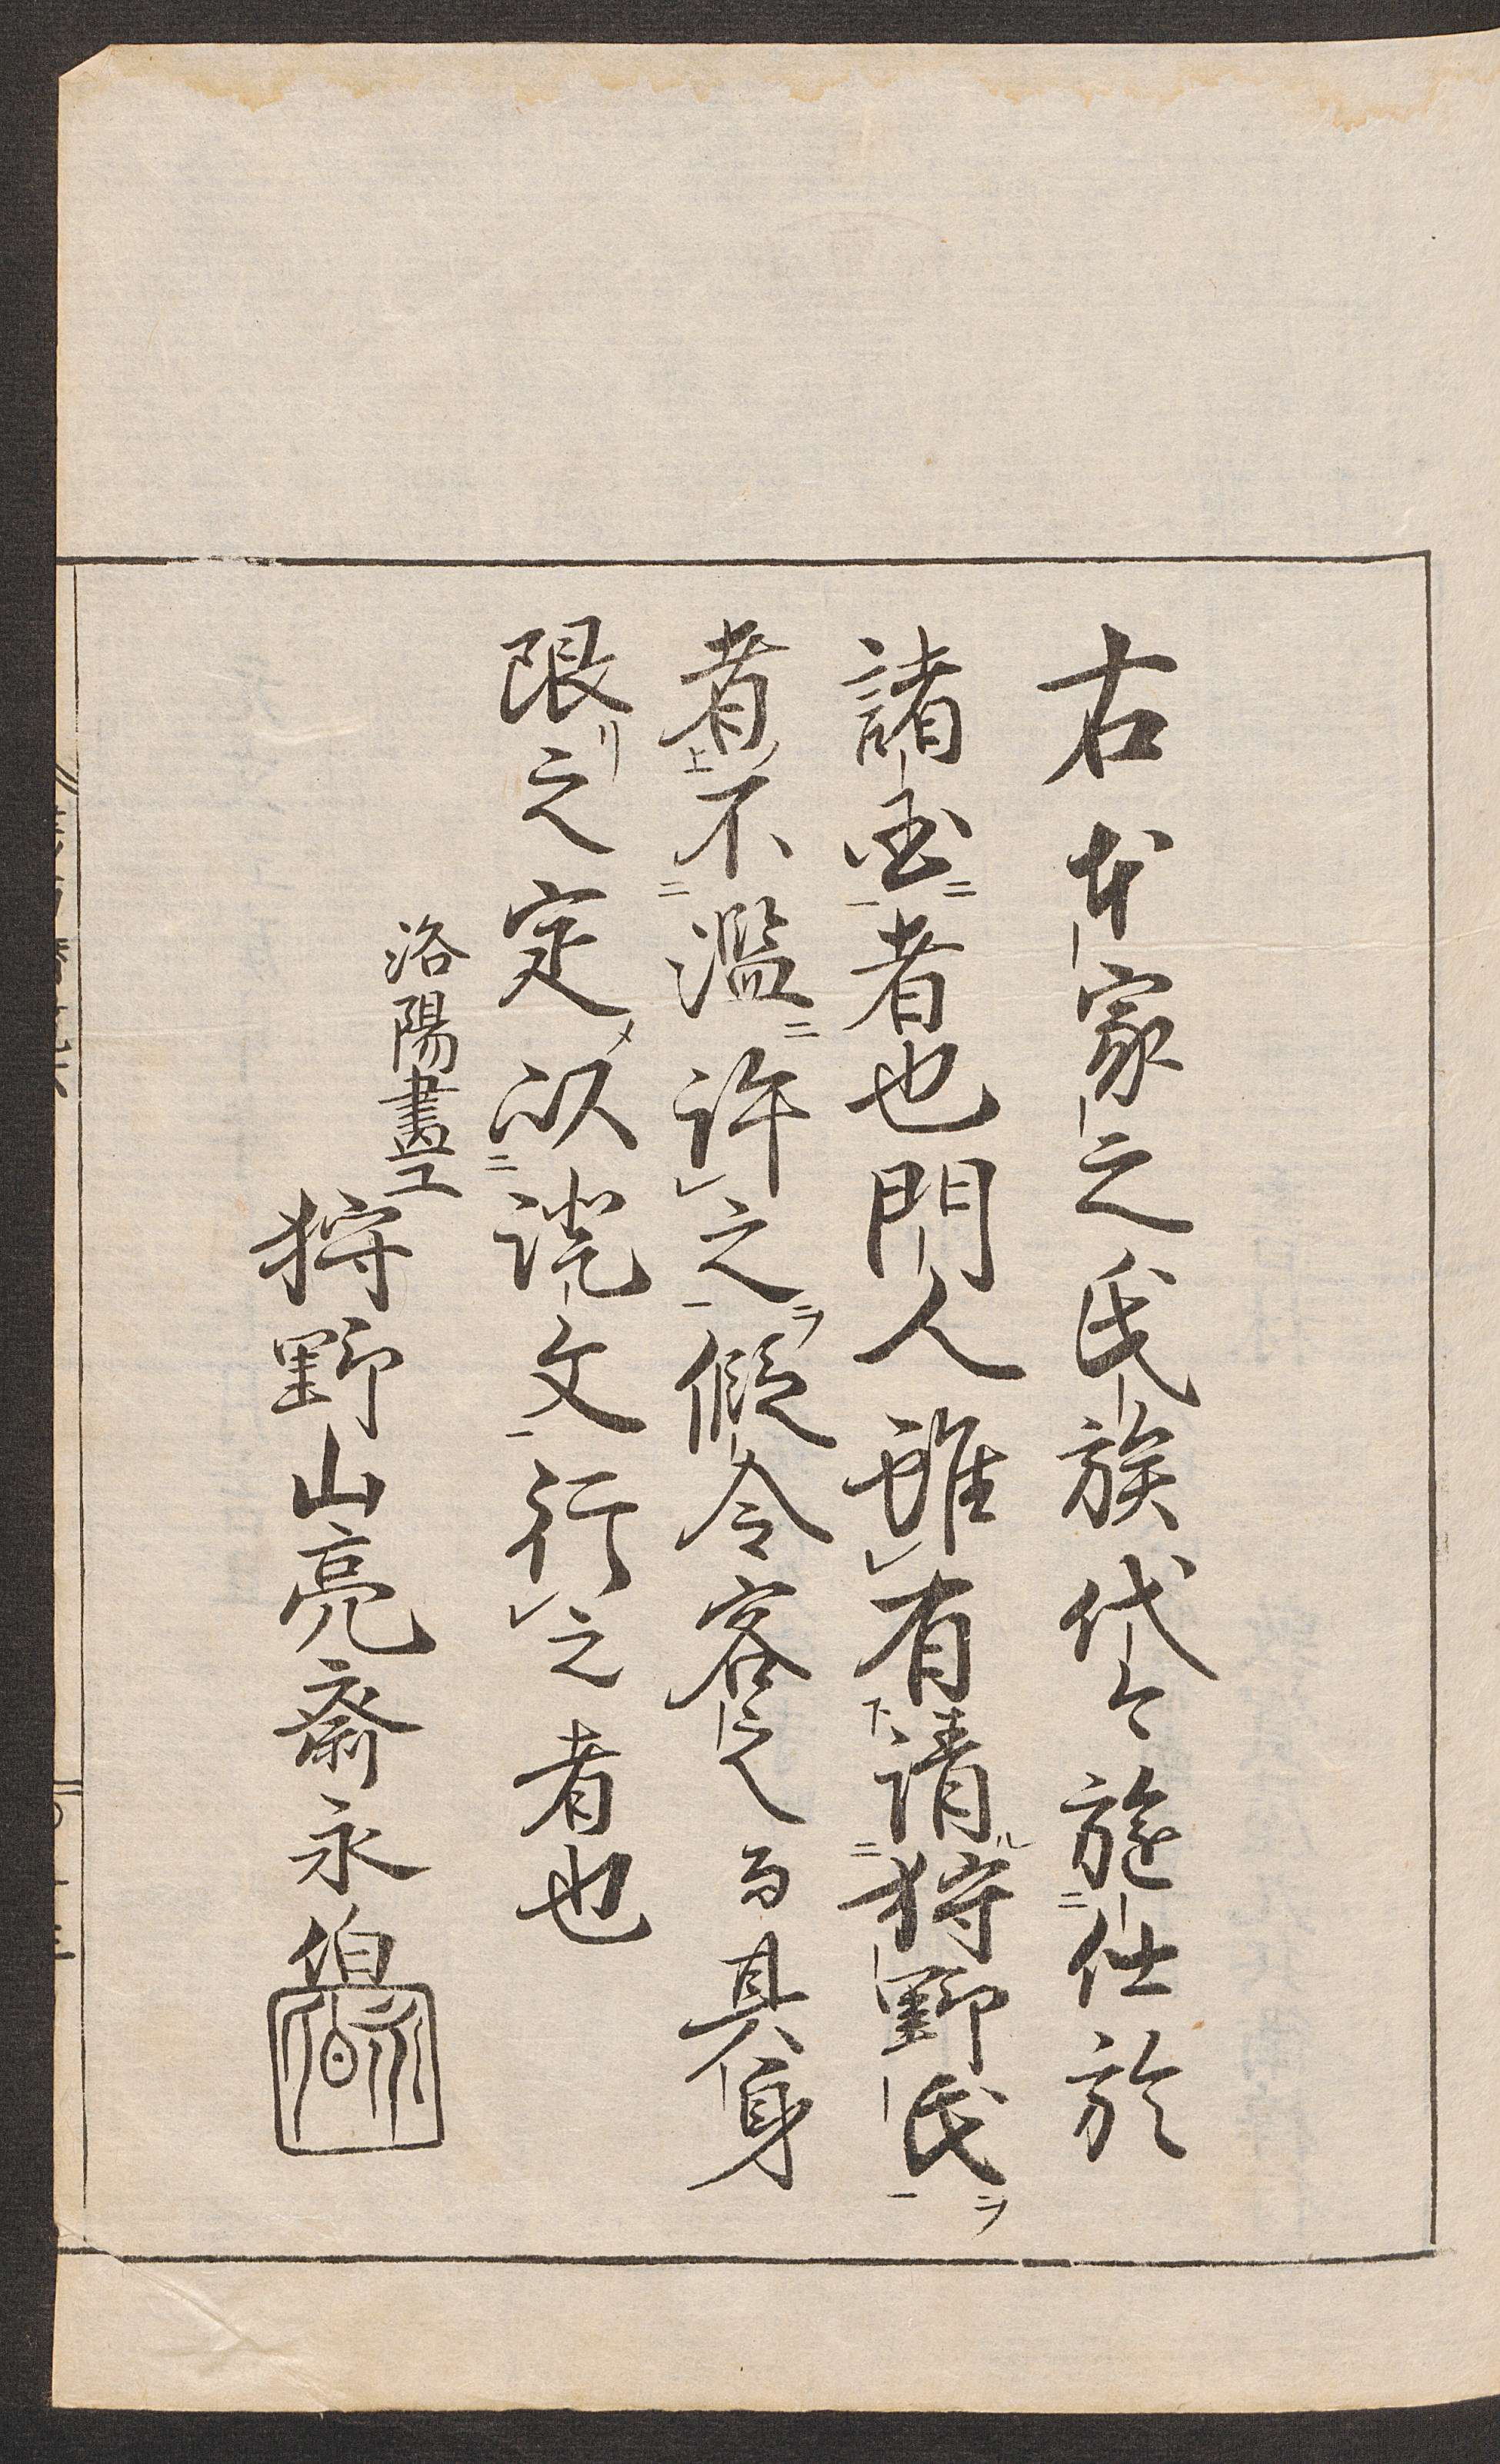 右本家之氏族代々旋仕於
諸国者也門人雖有請狩野氏
者不濫許之仮令客之而具身
限之定以証文行之者也
洛陽畫工
狩野山亮斎永伯